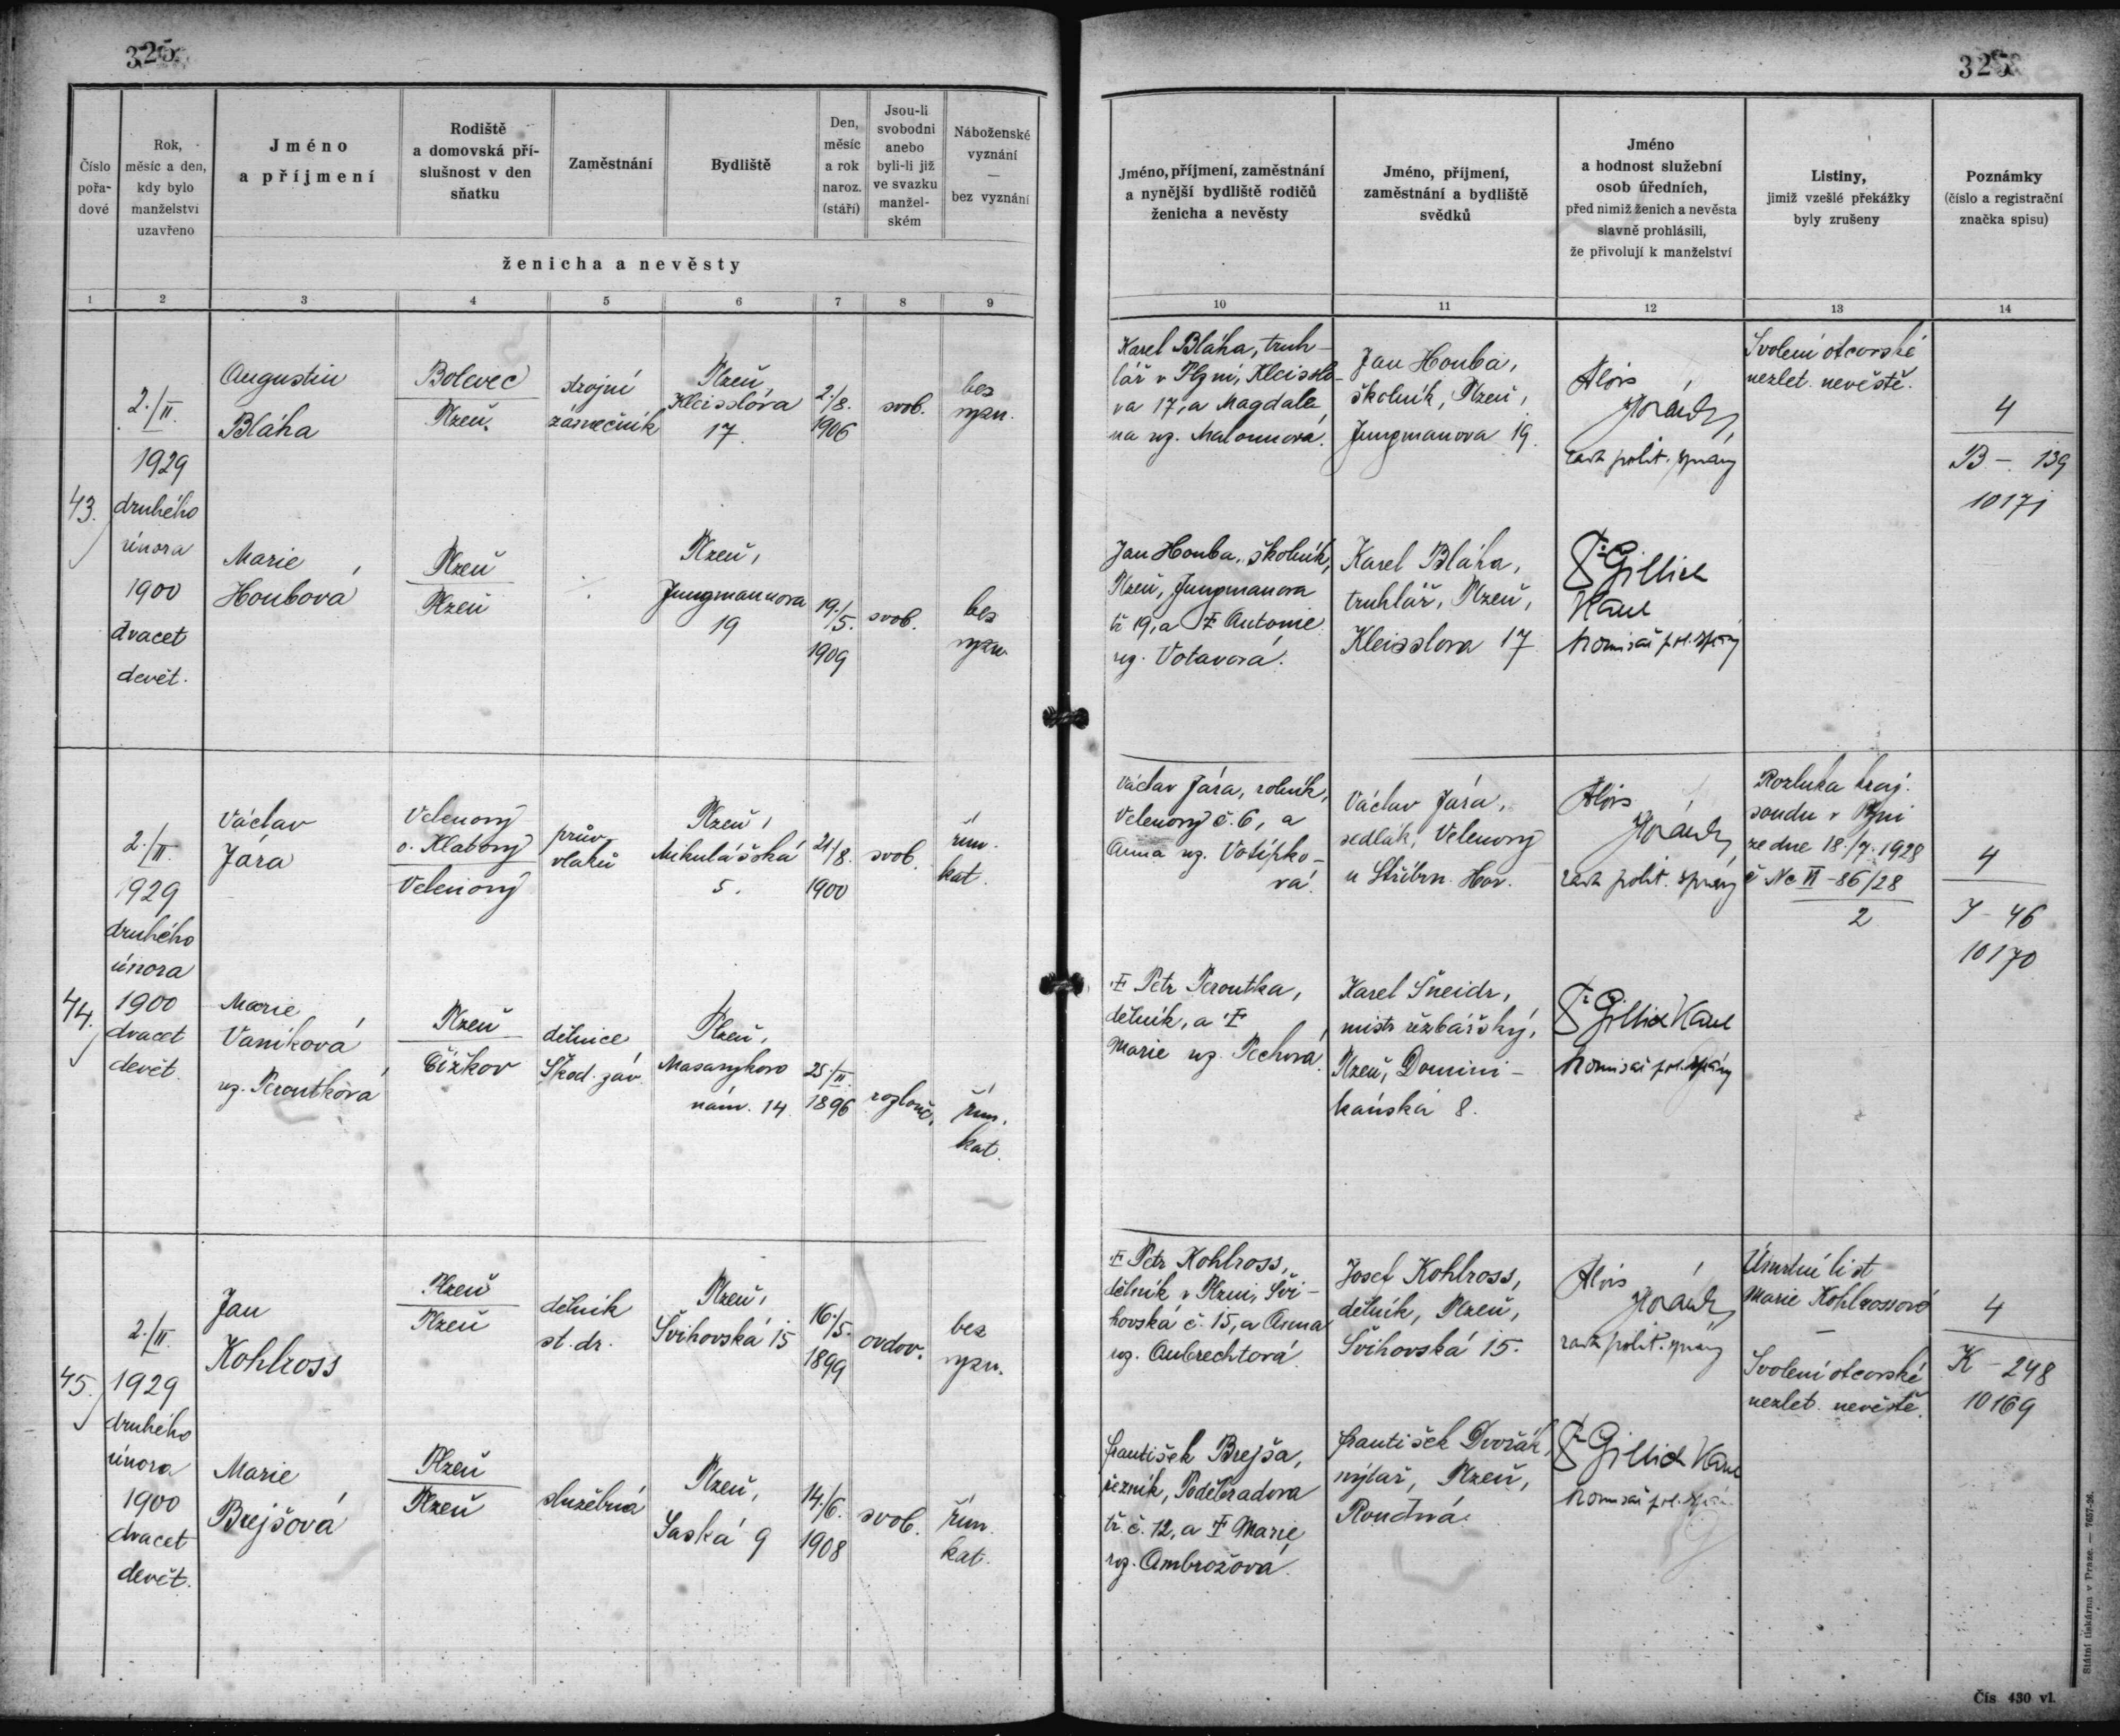 325
325
Číslo
pořa-
dové
Rok,
měsíc a den,
kdy bylo
manželství
uzavřeno
Jméno
a příjmení
Rodiště
a domovská pří-
slušnost v den
sňatku
Zaměstnání
Bydliště
Den,
měsíc
a rok
naroz.
(stáří)
Jsou-li
svobodni
anebo
byli-li již
ve svazku
manžel-
ském
Náboženské
vyznání
—
bez vyznání
ženicha a nevěsty
Jméno, příjmení, zaměstnání
a nynější bydliště rodičů
ženicha a nevěsty
Jméno, příjmení,
zaměstnání a bydliště
svědků
Jméno
a hodnost služební
osob úředních,
před nimiž ženich a nevěsta
slavně prohlásili,
že přivolují k manželství
Listiny,
jimiž vzešlé překážky
byly zrušeny
Poznámky
(číslo a registrační
značka spisu)
1 2 3 4 5 6 7 8 9 10 11 12 13 14
43.
2./II.
1929
druhého
února
1900
dvacet
devět.
Augustin
Bláha
Bolevec
Plzeň.
strojní
zámečník
Plzeň,
Kleisslova
17
2./8.
1906
svob.
bez
vyzn.
Karel Bláha, truh-
lář v Plzni, Kleisslo-
va 17, a Magdale-
na roz. Malounová.
Jan Houba,
školník, Plzeň,
Jungmanova 19.
Alois
rada polit. správy
Svolení otcovské
nezlet. nevěstě.
4
B - 139
10171
Marie
Houbová
Plzeň
Plzeň
Plzeň,
Jungmannova
19
19./5.
1909
svob.
bez
vyzn.
Jan Houba, školník,
Plzeň, Jungmanova
tř. 19, a Antonie
roz. Votavová.
Karel Bláha,
truhlář, Plzeň,
Kleisslova 17
komisař pol. správy
44.
2./II.
1929
druhého
února
1900
dvacet
devět.
Václav
Jára
Velenovy
o. Klatovy
Velenovy
prův.
vlaků
Plzeň,
Mikulášská
5.
21./8.
1900
svob.
řím.
kat.
Václav Jára, rolník,
Velenovy č. 6, a
Anna roz. Votípko-
vá.
Václav Jára,
sedlák, Velenovy
u Stříbrn. Hor.
Alois
rada polit. správy
Rozluka kraj.
soudu v Plzni
ze dne 18./7. 1928
č Nc VI - 86/28
2
4
J - 46
10170
Marie
Vaníková
roz. Peroutková
Plzeň
Čížkov
dělnice
Škod. záv.
Plzeň,
Masarykovo
nám. 14.
25./II.
1896
rozlouč.
řím.
kat.
Petr Peroutka,
dělník, a
Marie roz. Pechová.
Karel Šneidr,
mistr řezbářský,
Plzeň, Domini-
kánská 8.
komisař pol. správy
45.
2./II.
1929
druhého
února
1900
dvacet
devět.
Jan
Kohlross
Plzeň
Plzeň
dělník
st. dr.
Plzeň,
Švihovská 15
16./5.
1899
ovdov.
bez
vyzn.
Petr Kohlross,
dělník v Plzni, Švi-
hovská č. 15, a Anna
roz. Aubrechtová.
Josef Kohlross,
dělník, Plzeň,
Švihovská 15.
Alois
rada polit. správy
Úmrtní list
Marie Kohlrossové
—
Svolení otcovské
nezlet. nevěstě.
4
K - 248
10169
Marie
Brejšová
Plzeň
Plzeň
služebná
Plzeň,
Saská 9
14./6.
1908
svob.
řím.
kat.
František Brejša,
řezník, Poděbradova
tř. č. 12, a Marie
roz. Ambrožová.
František Dvořák,
nýtař, Plzeň,
Roudná.
komisař pol. správy
Státní tiskárna v Praze. — 7657-26.
Čís. 430 vl.